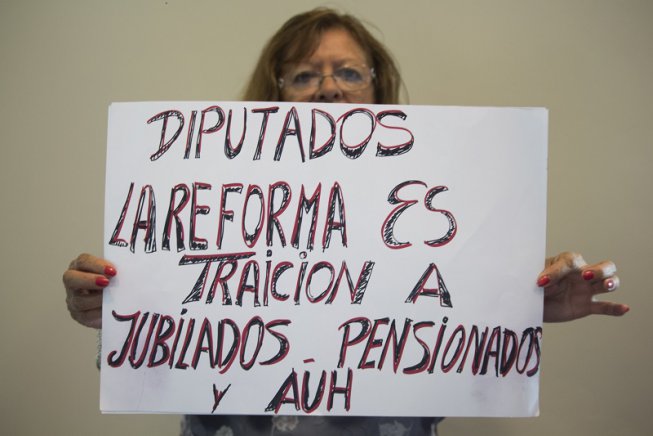 DIPUTADOS
LA REFORMA ES
TRAICION A
JUBILADOS_ PENSIONADOS
Y AÜH